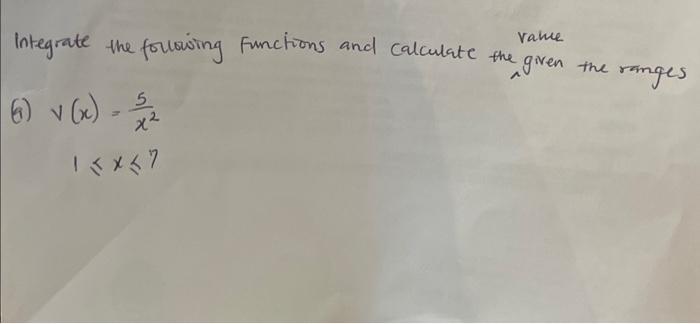 Integrate the following functions and calculate the value given the ranges
(a) v(x) = 5/x²
1 ⩽ x ⩽ 7